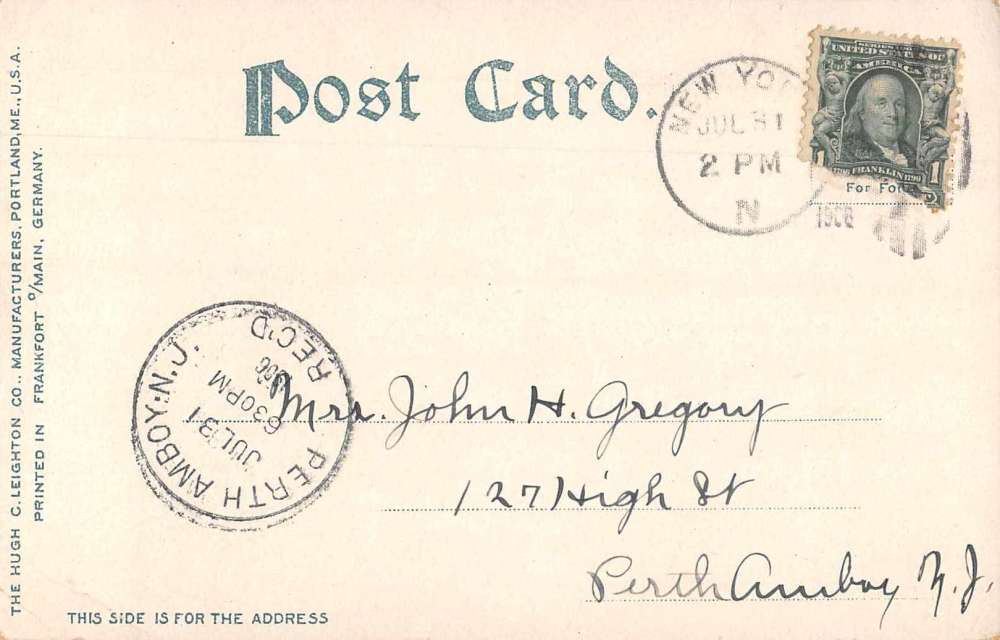 Post Card.
NEW YO
JUL 31
2 PM
N
1906
UNITED STATES OF
AMERICA
1 FRANKLIN 1790 1
For Fo
PERTH AMBOY, N.J.
JUL 31
630PM
REC'D
Mrs. John H. Gregory
127 High St
Perth Amboy N.J.
THIS SIDE IS FOR THE ADDRESS
THE HUGH C. LEIGHTON CO., MANUFACTURERS, PORTLAND, ME., U.S.A.
PRINTED IN FRANKFORT O/MAIN, GERMANY.